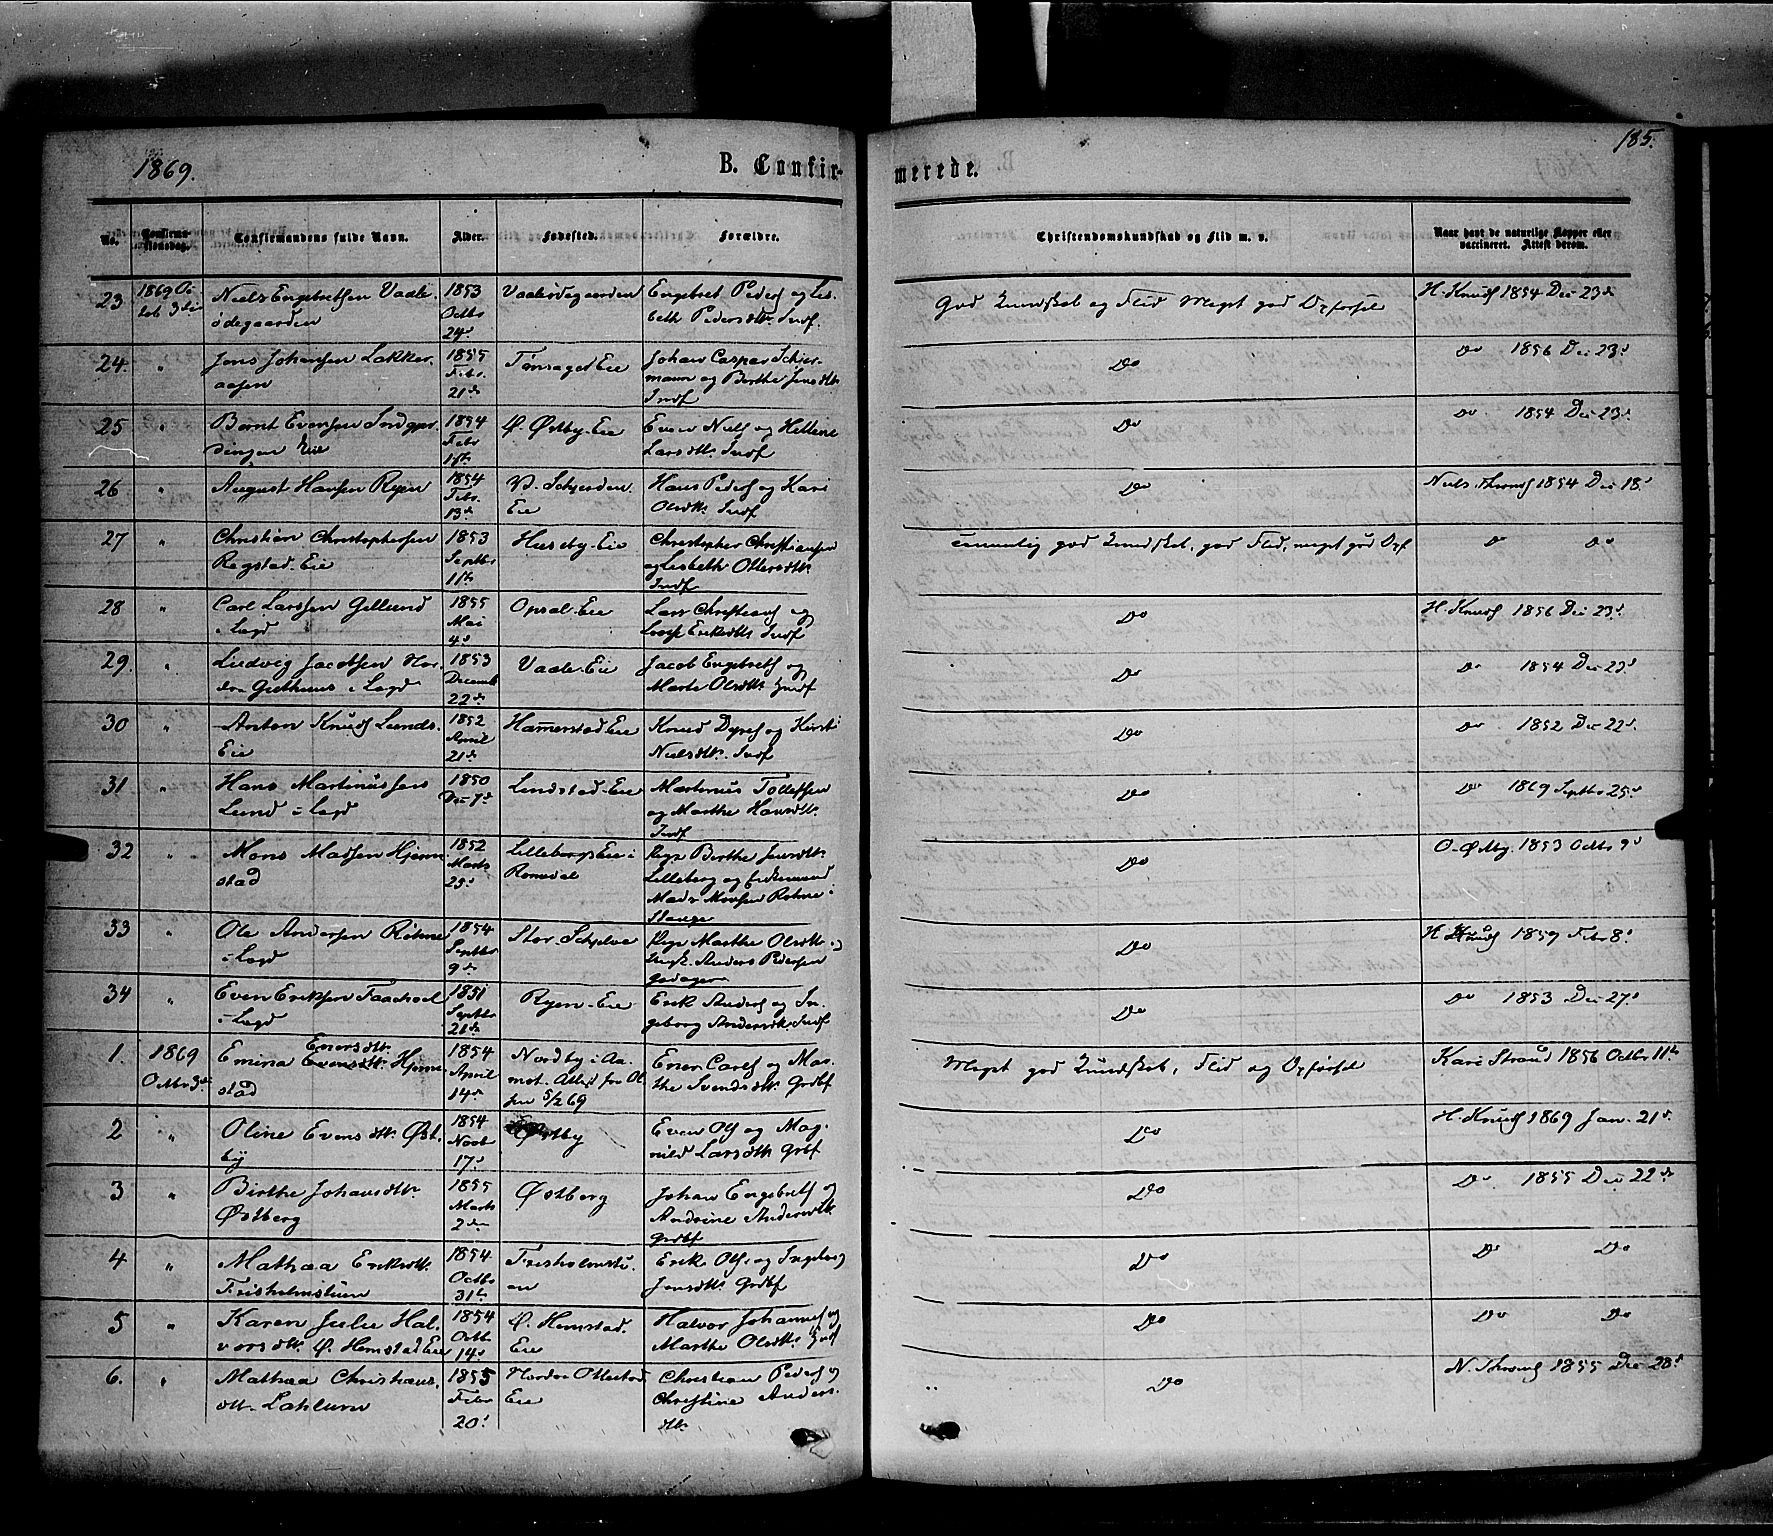 185.
1869.
B. Confirmerede.
No.
Confirmationsdag.
Confirmandens fulde Navn.
Alder.
Fødested.
Forældre.
Christendomskundskab og Flid m. v.
Naar havt de naturlige Kopper eller vaccineret. Attest derom.
23 1869 Octob 3die Niels Engebretsen Vaaleødegaarden 1853 Octbr 24d Vaaleødegaarden Engebret Peders og Lisbeth Pedersdtr. Indf. God Kundskab og Flid Meget god Opførsel H. Knuds 1854 Dec 23d
24. " Jens Johansen Lakkeraasen 1855 Febr. 21de Tønsager Eie Johan Caspar Schiermann og Berthe Jensdtr Indf Do Do 1856 Dec 23d
25 " Bernt Evensen Eie 1854 Febr Ø. Østby Eie Even Niels og Hellene Larsdtr Indf Do Do 1854 Dec 23d
26 " August Hansen Ryen 1854 Febr. 13de V. Schjerden Eie Hans Peders og Kari Olsdtr Indf Do Niels Throns 1854 Dec 18d
27 " Christian Christophersen Ragstad Eie 1853 Septbr Huseby Eie Christopher Christiansen og Lisbeth Ottersdtr. Indf temmelig god Kundskab, god Flid, meget god Opf Do Do
28 " Carl Larssen Gillund i Lægd 1855 Mai 4d Opsal Eie Lars Christians og Eriksdtr Indf Do H. Knuds 1856 Dec 23d
29. " Ludvig Jacobsen Nordre Guthuus i Lægd 1853 December 22de Vaale Eie Jacob Engebrets og Marte Olsdtr Indf Do Do 1854 Dec 23d
30 " Anton Knuds Lunds Eie 1852 April 21de Hamerstad Eie Knud Dyres og Kirsti Nielsdtr. Indf Do Do 1852 Dec 22d
31 " Hans Martinussen Lund i Lægd 1850 Dec 7d Lindstad Eie Martinus Tollefsen og Marthe Hansdtr. Indf Do Do 1869 Septbr 25d
32 " Mons Madsen Hjemstad 1852 Marts 25d Lilleberg Eie i Romedal Pige Berthe Jensdtr Lilleberg og Mads Monsen Rohne i Stange Do O. Østby 1853 Octbr 9d
33 " Ole Andersen Röhne i Lægd 1854 Septbr 9de Stor Schjelve Pige Marthe Olsdtr og Ungk. Anders Pedersen Do H Knuds 1859 Febr 8d
34 " Even Eriksen i Lægd 1851 Septbr 21de Ryen Eie Erik Anders og Ingeborg Andersdtr. Indf Do Do 1853 Dec 27d
1. 1869 Octbr 3de Emina Enersdtr. Evensdtr. Hjemstad 1854 April 14de Nordby i Aamot. Attest fra 5/2 69 Ener Carls og Marthe Svendsdtr. Grdbf Meget god Kundskab, Flid og Opførsel Kari Strand 1856 Octbr 11te
2 " Oline Evensdtr. Østby 1854 Novb 17d Østby Even Ols og Magnild Larsdtr. Grbf Do H. Knuds 1869 Jan. 21d
3 " Birthe Johansdtr. Østberg 1855 Marts 2den Østberg Johan Engebrets og Andrine Andersdtr. Grdbf Do Do 1855 Dec 22de
4 " Mathea Eriksdtr. Frisholmstuen 1854 Octbr 31te Frisholmstuen Erik Ols. og Ingeborg Jensdtr. Grdbf Do Do Do
5 " Karen Julie Halvorsdtr. Ø. Hemstad Eie 1854 Octb 14d Ø. Hemstad. Eie Halvor Johannes og Marthe Olsdtr. Indf Do Do Do
6. " Mathea Christiansdtr. 1855 Febr 20d Nordre Ottestad Eie Christian Peders og Christine Andersdtr. Do N. Throns 1855 Dec 28d